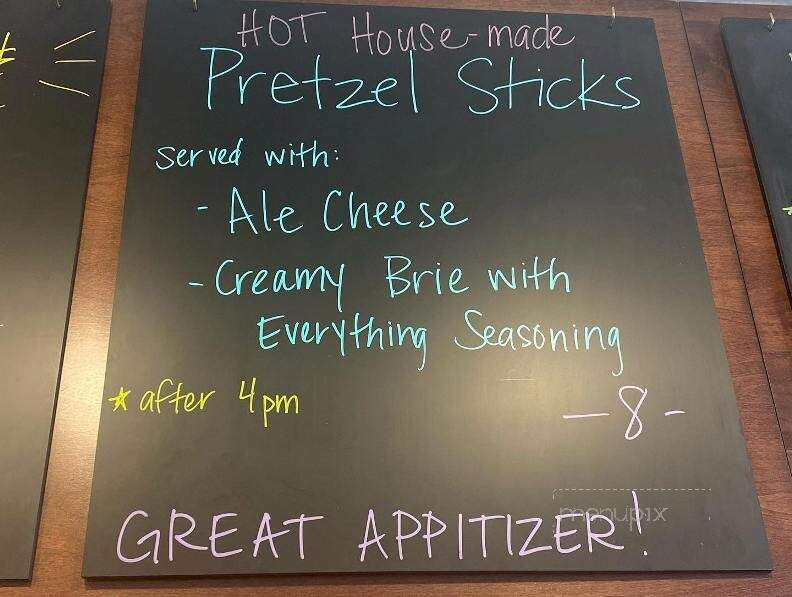 HOT House-made
Pretzel Sticks
served with:
- Ale Cheese
- Creamy Brie with
Everything Seasoning
* after 4pm
- 8 -
GREAT APPITIZER!
menupix